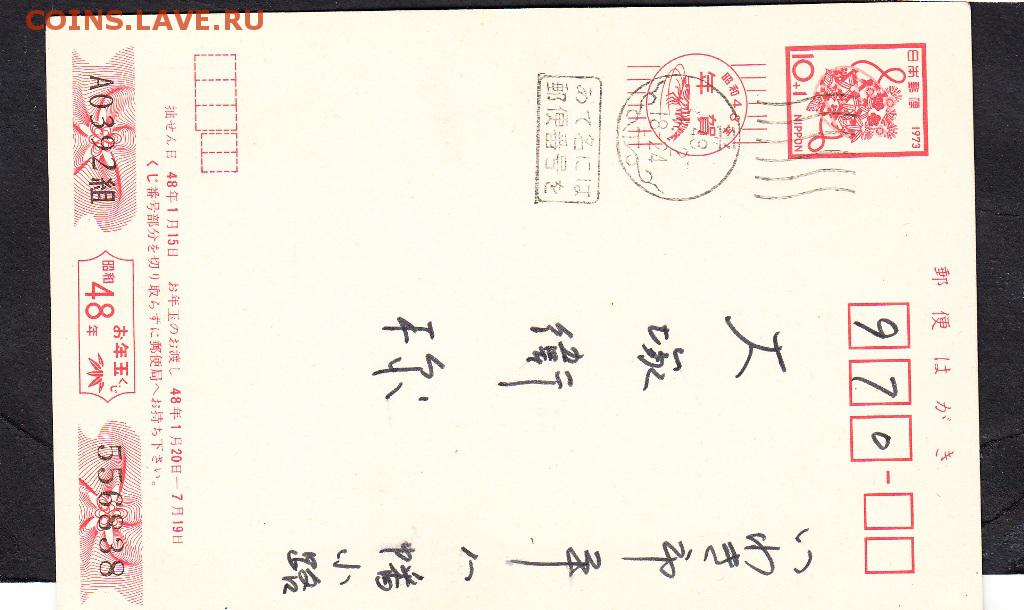 COINS.LAVE.RU
日本郵便
10+1
NIPPON
1973
昭和48年
年賀
あて名には
郵便番号を
郵便はがき
970-
いわき市平八幡小路
大塚
様
抽せん日 48年1月15日 お年玉のお渡し 48年1月20日—7月19日
くじ番号部分を切り取らずに郵便局へお持ち下さい。
A0392組
昭和
48年
お年玉くじ
556838